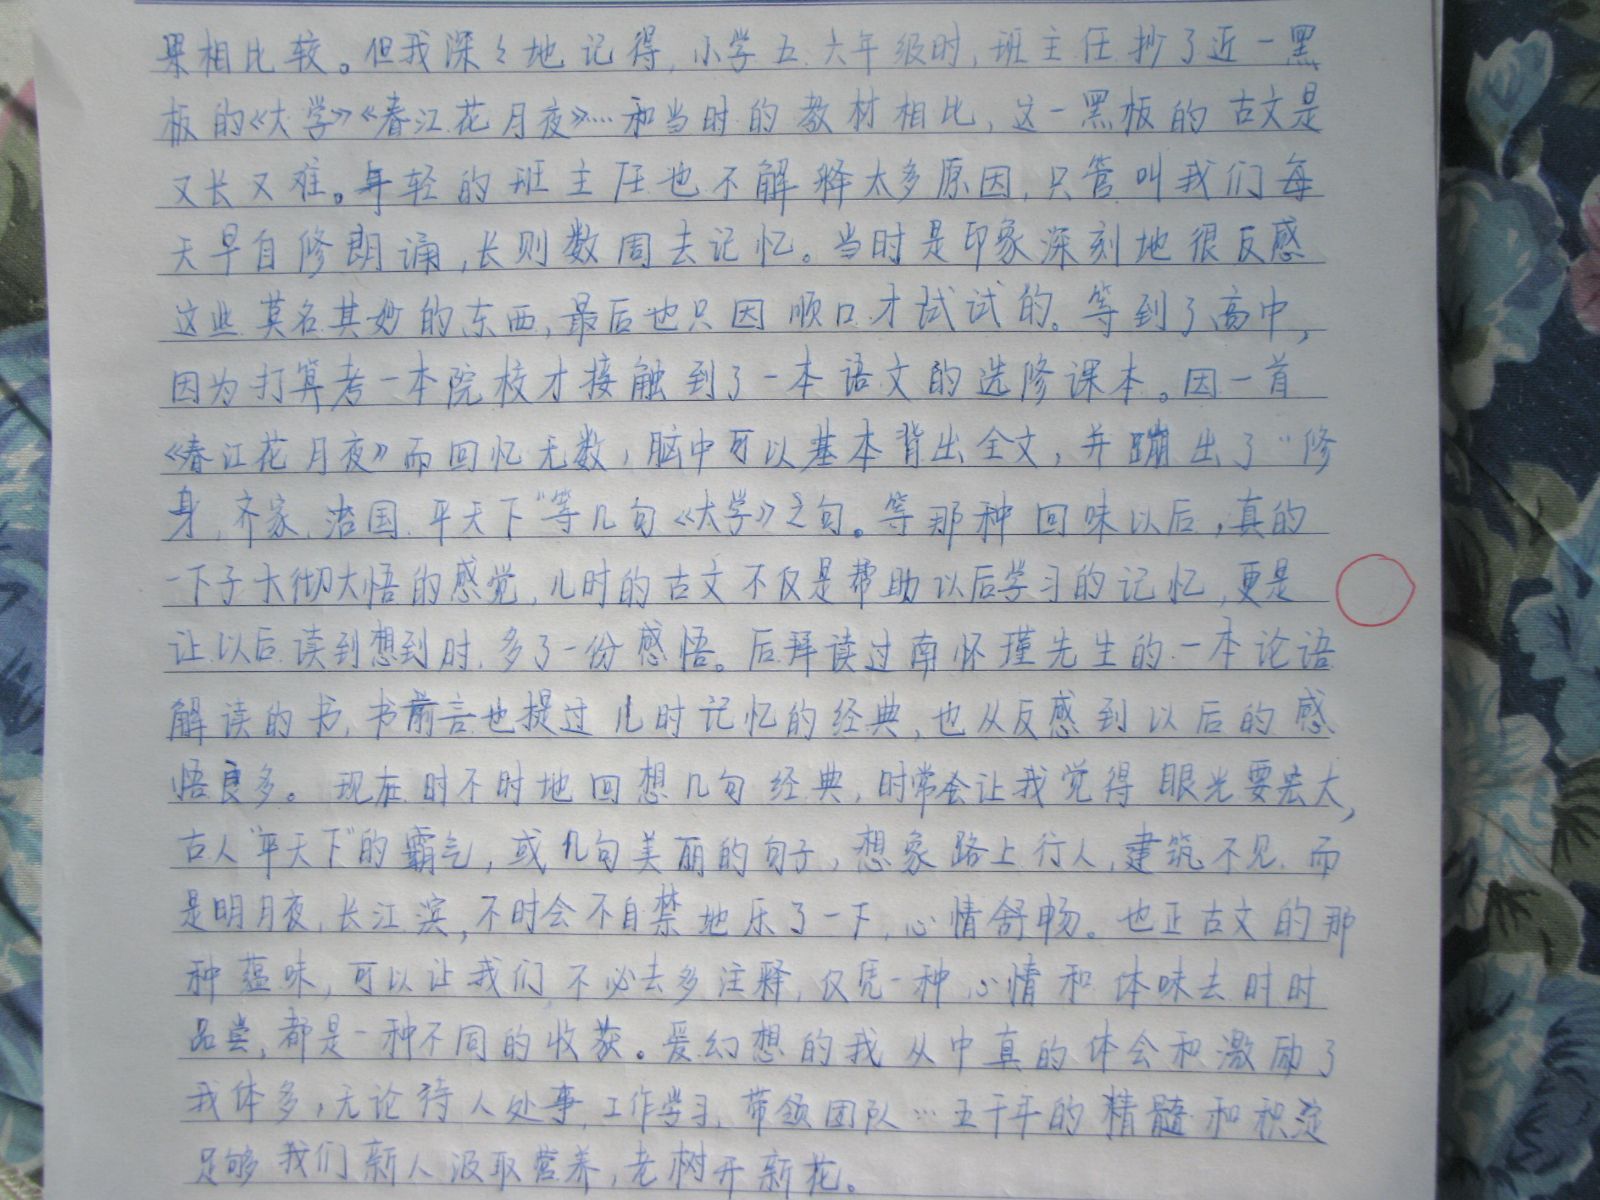 果相比较。但我深々地记得,小学五、六年级时,班主任抄了近一黑
板的《大学》《春江花月夜》…和当时的教材相比,这一黑板的古文是
又长又难。年轻的班主任也不解释太多原因,只管叫我们每
天早自修朗诵,长则数周去记忆。当时是印象深刻地很反感
这些莫名其妙的东西,最后也只因顺口才试试的。等到了高中,
因为打算考一本院校才接触到了一本语文的选修课本。因一首
《春江花月夜》而回忆无数,脑中可以基本背出全文,并蹦出了“修
身,齐家,治国,平天下”等几句《大学》之句。等那种回味以后,真的
一下子大彻大悟的感觉,儿时的古文不仅是帮助以后学习的记忆,更是
让以后读到想到时,多了一份感悟。后拜读过南怀瑾先生的一本论语
解读的书,书前言也提过儿时记忆的经典,也从反感到以后的感
悟良多。现在时不时地回想几句经典,时常会让我觉得眼光要宏大,
古人“平天下”的霸气,或几句美丽的句子,想象路上行人,建筑不见,而
是明月夜,长江滨,不时会不自禁地乐了一下,心情舒畅。也正古文的那
种蕴味,可以让我们不必去多注释,仅凭一种心情和体味去时时
品尝,都是一种不同的收获。爱幻想的我从中真的体会和激励了
我体多,无论待人处事,工作学习,带领团队…五千年的精髓和积淀
足够我们新人汲取营养,老树开新花。